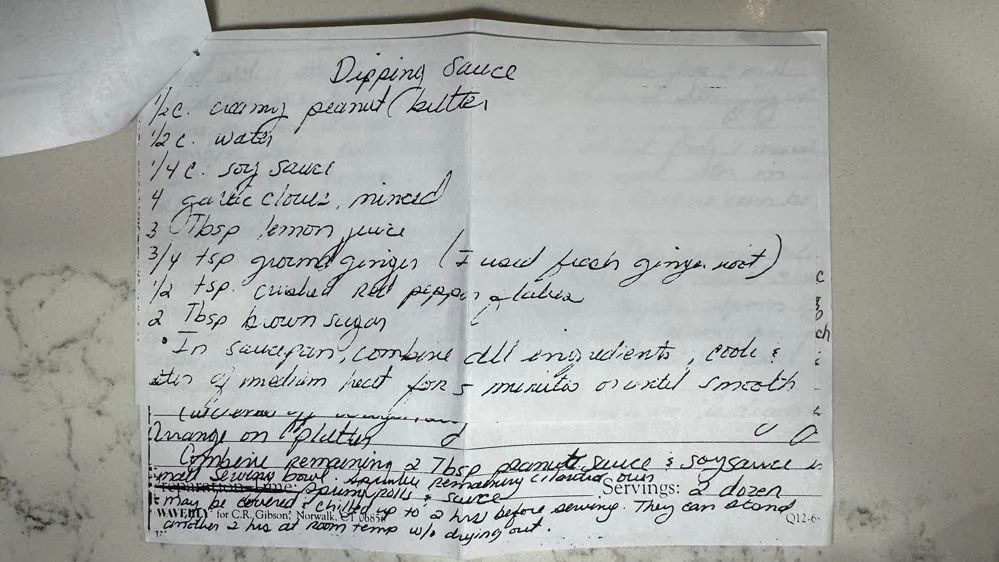 Dipping Sauce
1/2 c. creamy peanut butter
1/2 c. water
1/4 c. soy sauce
4 garlic cloves, minced
3 Tbsp lemon juice
3/4 tsp ground ginger (I used fresh ginger root)
1/2 tsp. crushed red pepper flakes
2 Tbsp brown sugar
• In saucepan, combine all ingredients, cook &
stir of medium heat for 5 minutes or until smooth
Arrange on platter
Combine remaining 2 Tbsp peanut sauce & soy sauce in
small serving bowl. Sprinkle remaining cilantro over
Preparation Time: Spring rolls & sauce Servings: 2 dozen
may be covered & chilled up to 2 hrs before serving. They can stand
WAVERLY for C.R. Gibson, Norwalk, CT 06856 Q12-6
another 2 hrs at room temp w/o drying out.